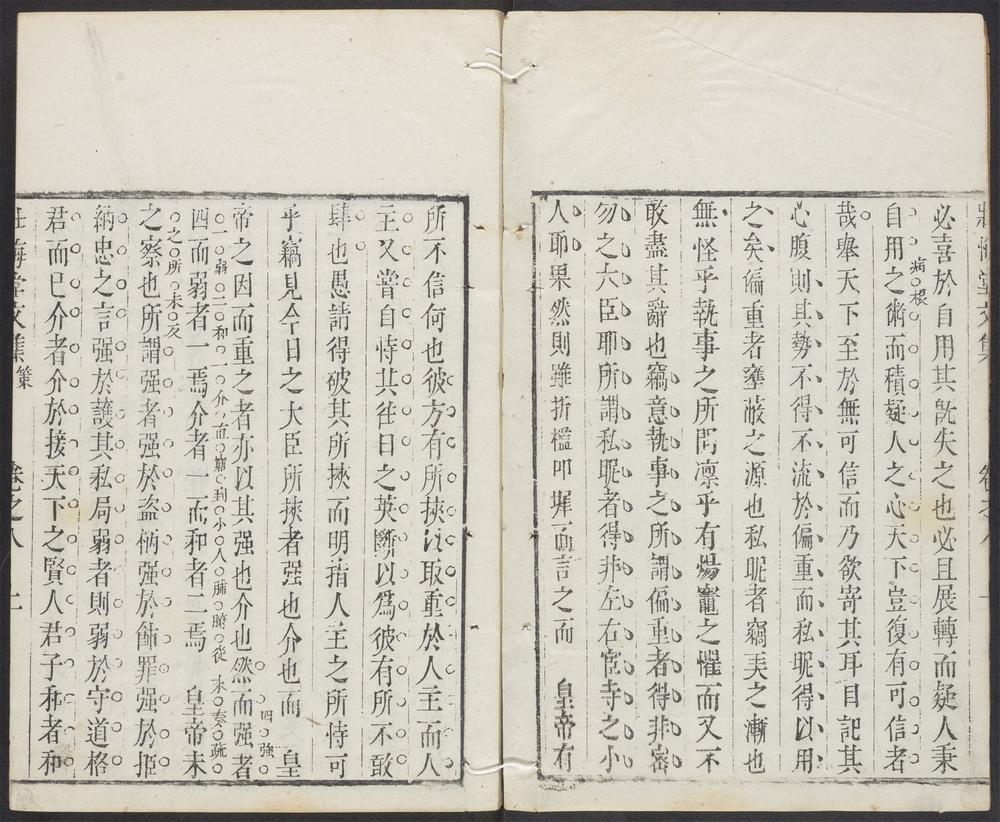 壯悔堂文集
卷之八
一
必喜於自用其旣失之也必且展轉而疑人秉
自用之術而積疑人之心天下豈復有可信者
病根
哉舉天下至於無可信而乃欲寄其耳目記其
心腹則其勢不得不流於偏重而私昵得以用
之矣偏重者壅蔽之源也私昵者竊美之漸也
無怪乎執事之所問凛乎有煬竈之懼而又不
敢盡其辭也竊意執事之所謂偏重者得非密
勿之六臣耶所謂私昵者得非左右宦寺之小
人耶果然則雖折檻叩墀而言之而 皇帝有
所不信何也彼方有所挾以取重於人主而人
主又嘗自恃其往日之英斷以爲彼有所不敢
肆也愚請得破其所挾而明指人主之所恃可
乎竊見今日之大臣所挾者强也介也而 皇
帝之因而重之者亦以其强也介也然而强者
四强
四而弱者一焉介者一而和者二焉 皇帝未
一弱二和一介直窮到小人肺腑從來奏疏
之所未及
之察也所謂强者强於盗柄强於飾罪强於拒
納忠之言强於護其私局弱者則弱於守道格
君而已介者介於接天下之賢人君子和者和
壯悔堂文集
策
卷之八
二